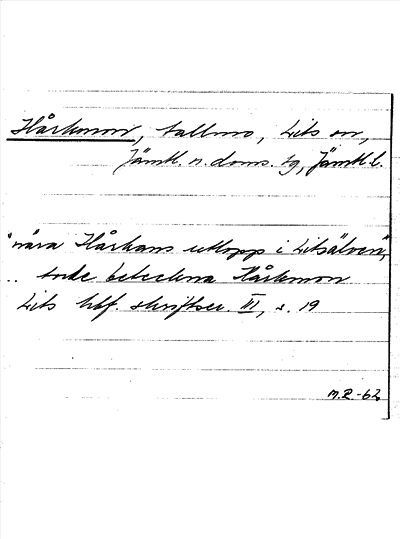 Hårkmon, tallmo, Lits sn,
Jämtl. n. doms. tg, Jämtl. l.
"nära Hårkans utlopp i Litsälven",
.. torde beteckna Hårkmon
Lits hbf. skriftser. III, s. 19
M.E.-62